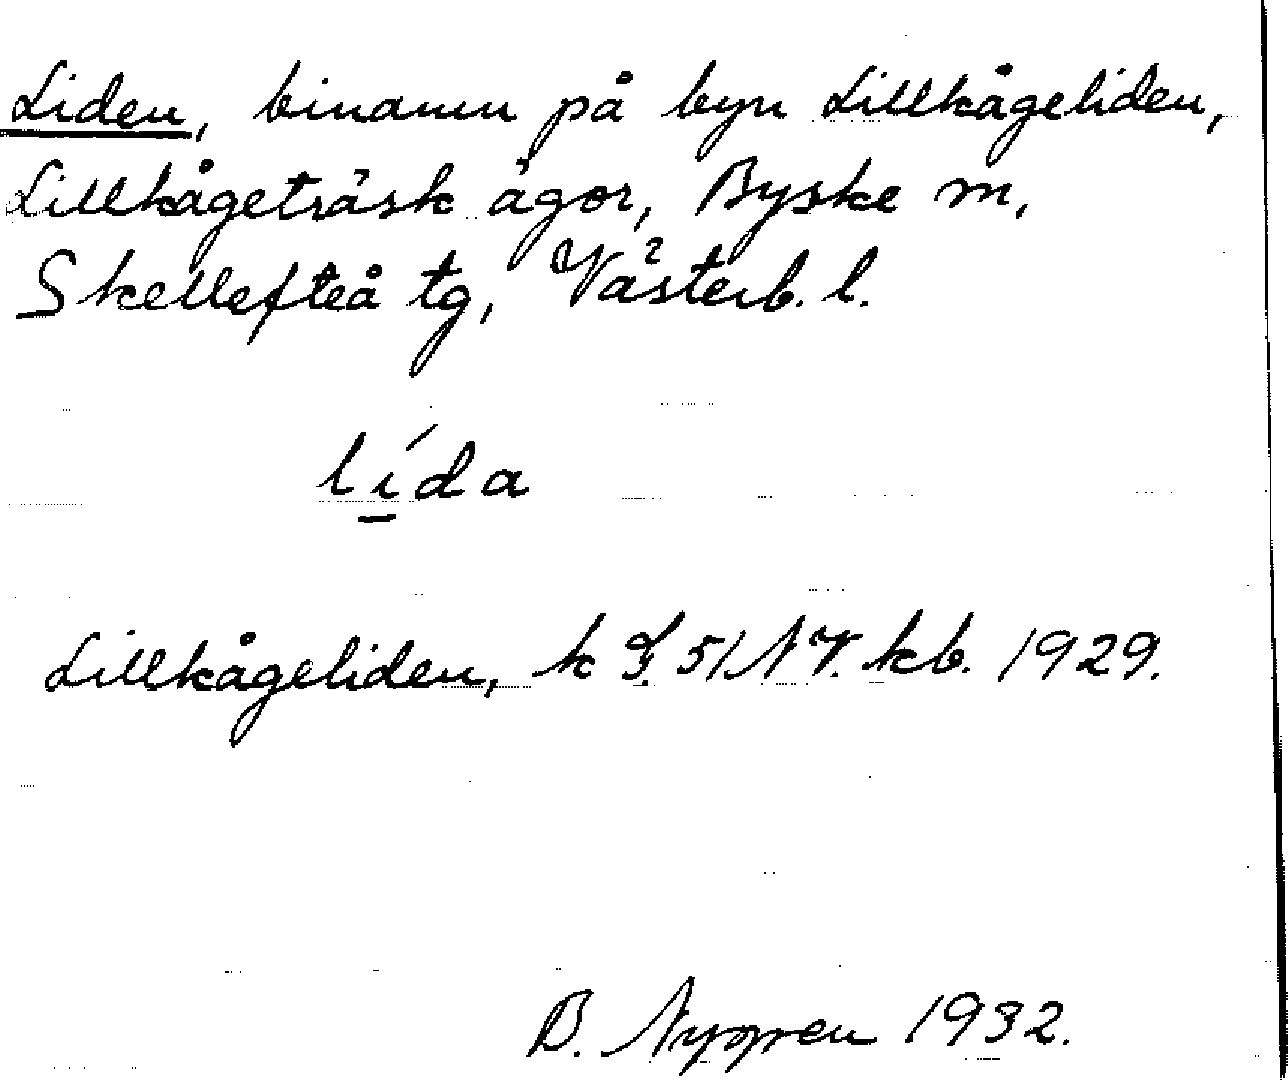 Liden, binamn på byn Lillkågeliden,
Lillkågeträsk ägor, Byske m,
Skellefteå tg, Västerb. l.
lida
Lillkågeliden, k 51 NV. kb. 1929.
B. Nygren 1932.